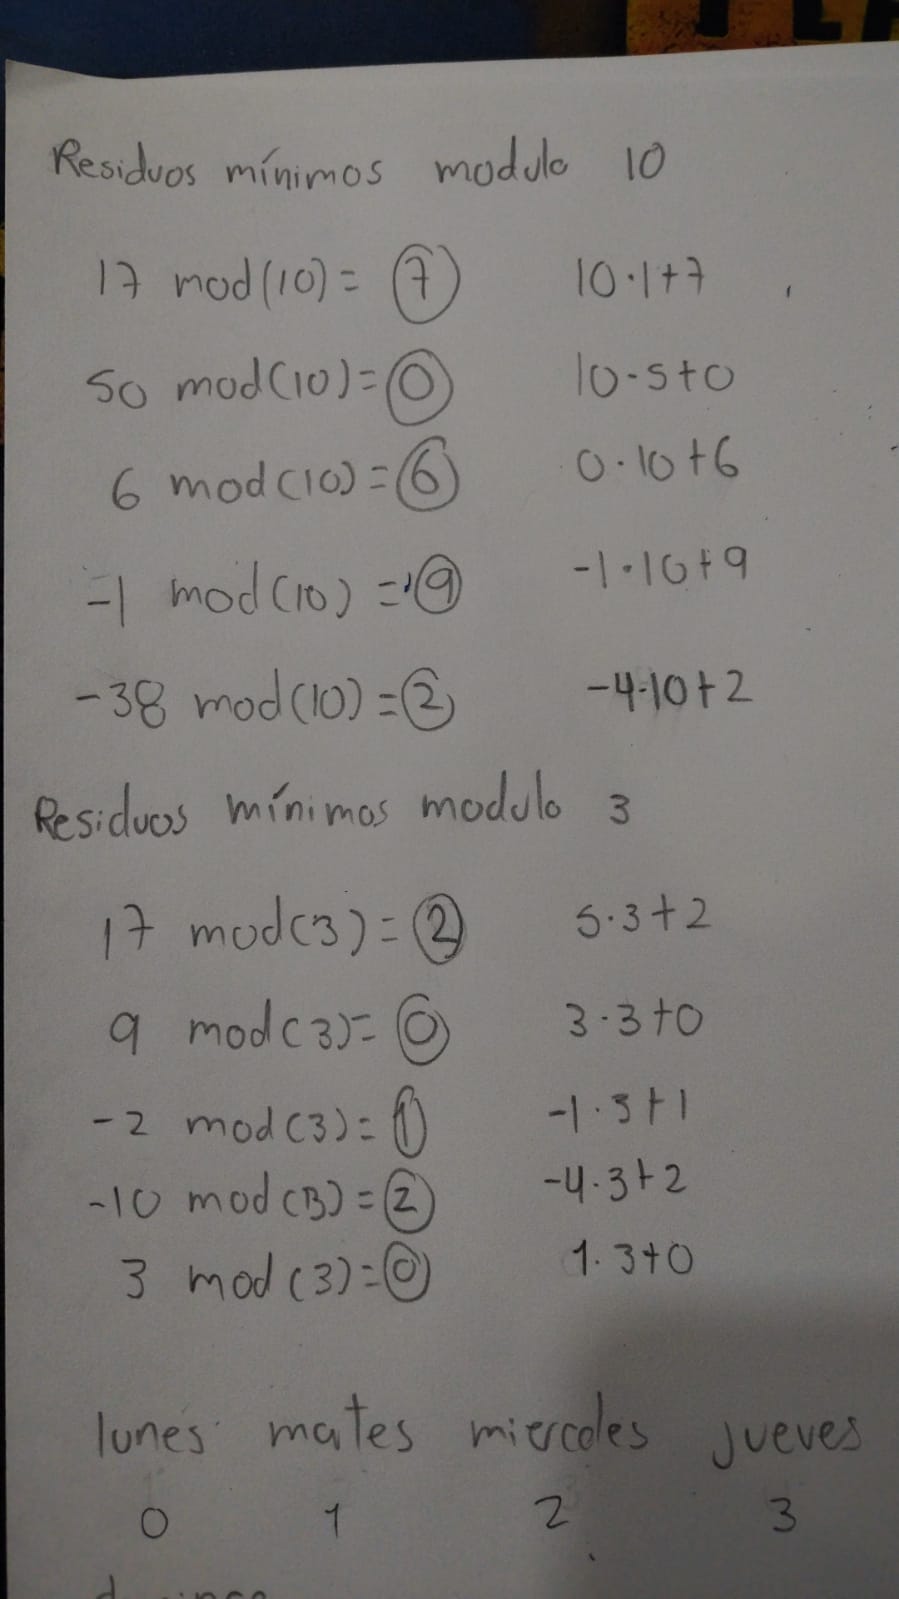 Residuos mínimos modulo 10
17 mod(10) = 7 10·1+7
50 mod(10) = 0 10·5+0
6 mod(10) = 6 0·10+6
-1 mod(10) = 9 -1·10+9
-38 mod(10) = 2 -4·10+2
Residuos mínimos modulo 3
17 mod(3) = 2 5·3+2
9 mod(3) = 0 3·3+0
-2 mod(3) = 1 -1·3+1
-10 mod(3) = 2 -4·3+2
3 mod(3) = 0 1·3+0
lunes mates miercoles jueves
0 1 2 3